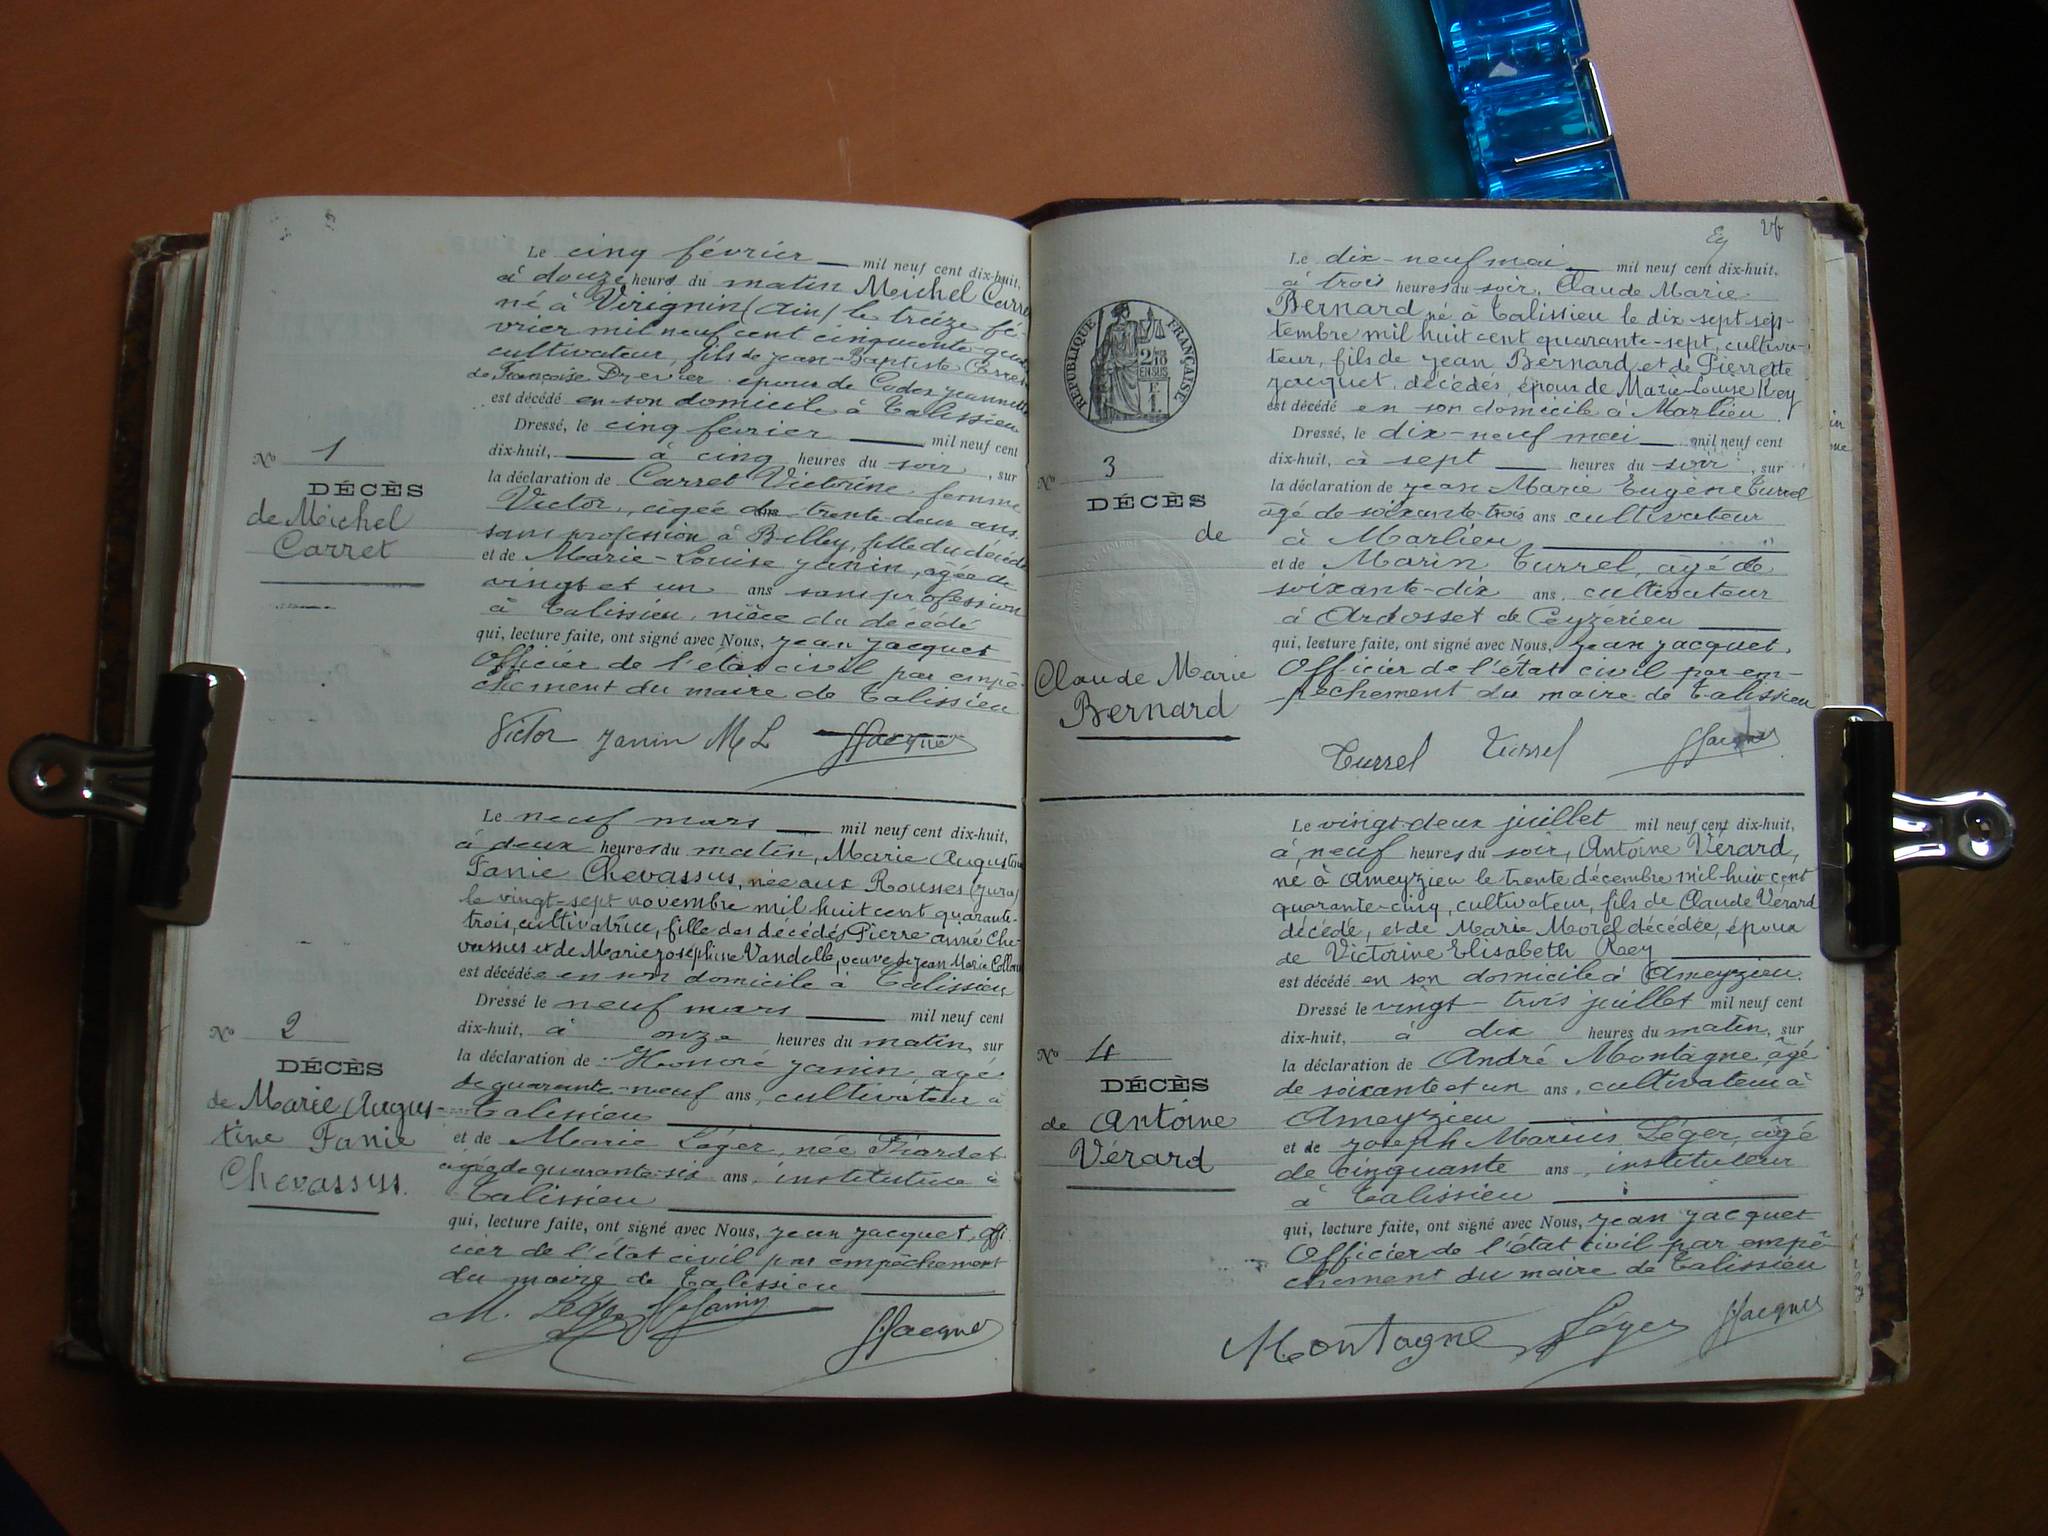 Le cinq février mil neuf cent dix-huit,
à douze heures du matin Michel Carret
né à Virignin (Ain) le treize fé-
vrier mil neuf cent cinquante
cultivateur, fils de Jean-Baptiste Carret
de Françoise Drevier époux de Jeannette
est décédé en son domicile à Talissieu
Dressé, le cinq février mil neuf cent
dix-huit, à cinq heures du soir, sur
la déclaration de Carret Victorine femme
Victor, agée de trente deux ans
sans profession à Belley, fille du décédé
et de Marie-Louise Janin, agée de
vingt et un ans sans profession
à Talissieu, nièce du décédé
qui, lecture faite, ont signé avec Nous, Jean Jacquet
Officier de l'état civil par empê-
chement du maire de Talissieu
Victor Janin M L JJacquet
No 1
DÉCÈS
de Michel
Carret
Le neuf mars mil neuf cent dix-huit,
à deux heures du matin, Marie Augustine
Fanie Chevassus, née aux Rousses (Jura)
le vingt-sept novembre mil huit cent quarante-
trois, cultivatrice, fille des décédés Pierre aimé Che-
vassus et de Marie Joséphine Vandelle, veuve de Jean Marie
est décédée en son domicile à Talissieu
Dressé le neuf mars mil neuf cent
dix-huit, à onze heures du matin, sur
la déclaration de Honoré Janin, agé
de quarante-neuf ans, cultivateur à
Talissieu
et de Marie Léger, née
agée de quarante-six ans, institutrice à
Talissieu
qui, lecture faite, ont signé avec Nous, Jean Jacquet, offi
cier de l'état civil par empêchement
du maire de Talissieu
M. Léger HJanin JJacquet
No 2
DÉCÈS
de Marie Augus-
tine Fanie
Chevassus.
26
Le dix-neuf mai mil neuf cent dix-huit,
à trois heures du soir, Claude Marie
Bernard né à Talissieu le dix-sept sep-
tembre mil huit cent quarante-sept, cultiva-
teur, fils de Jean Bernard et de Pierrette
Jacquet, décédés, époux de Marie-Louise Rey
est décédé en son domicile à Marlieu
Dressé, le dix-neuf mai mil neuf cent
dix-huit, à sept heures du soir, sur
la déclaration de Jean Marie Eugène Turrel
âgé de soixante-trois ans cultivateur
à Marlieu
et de Marin Turrel, âgé de
soixante-dix ans, cultivateur
à Ardosset de Ceyzérieu
qui, lecture faite, ont signé avec Nous, Jean Jacquet,
Officier de l'état civil par em-
pêchement du maire de Talissieu
Turrel Turrel JJacquet
RÉPUBLIQUE FRANÇAISE
No 3
DÉCÈS
de
Claude Marie
Bernard
Le vingt-deux juillet mil neuf cent dix-huit,
à neuf heures du soir, Antoine Vérard,
né à Ameyzieu le trente décembre mil-huit cent
quarante-cinq, cultivateur, fils de Claude Vérard
décédé, et de Marie Morel décédée, époux
de Victorine Elisabeth Rey
est décédé en son domicile à Ameyzieu.
Dressé le vingt-trois juillet mil neuf cent
dix-huit, à dix heures du matin, sur
la déclaration de André Montagne, âgé
de soixante et un ans, cultivateur à
Ameyzieu
et de Joseph Marius Léger, âgé
de cinquante ans, instituteur
à Talissieu
qui, lecture faite, ont signé avec Nous, Jean Jacquet
Officier de l'état civil par empê-
chement du maire de Talissieu
Montagne Léger JJacquet
No 4
DÉCÈS
de Antoine
Vérard